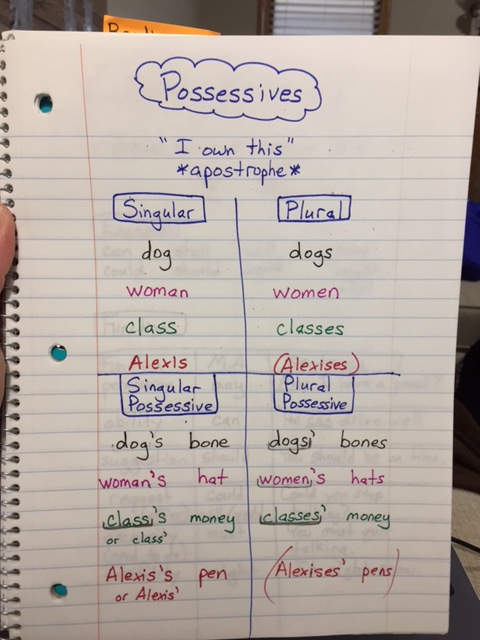 Possessives
"I own this"
*apostrophe*
Singular Plural
dog dogs
woman women
class classes
Alexis (Alexises)
Singular Possessive Plural Possessive
dog's bone dogs' bones
woman's hat women's hats
class's money classes' money
or class'
Alexis's pen (Alexises' pens)
or Alexis'